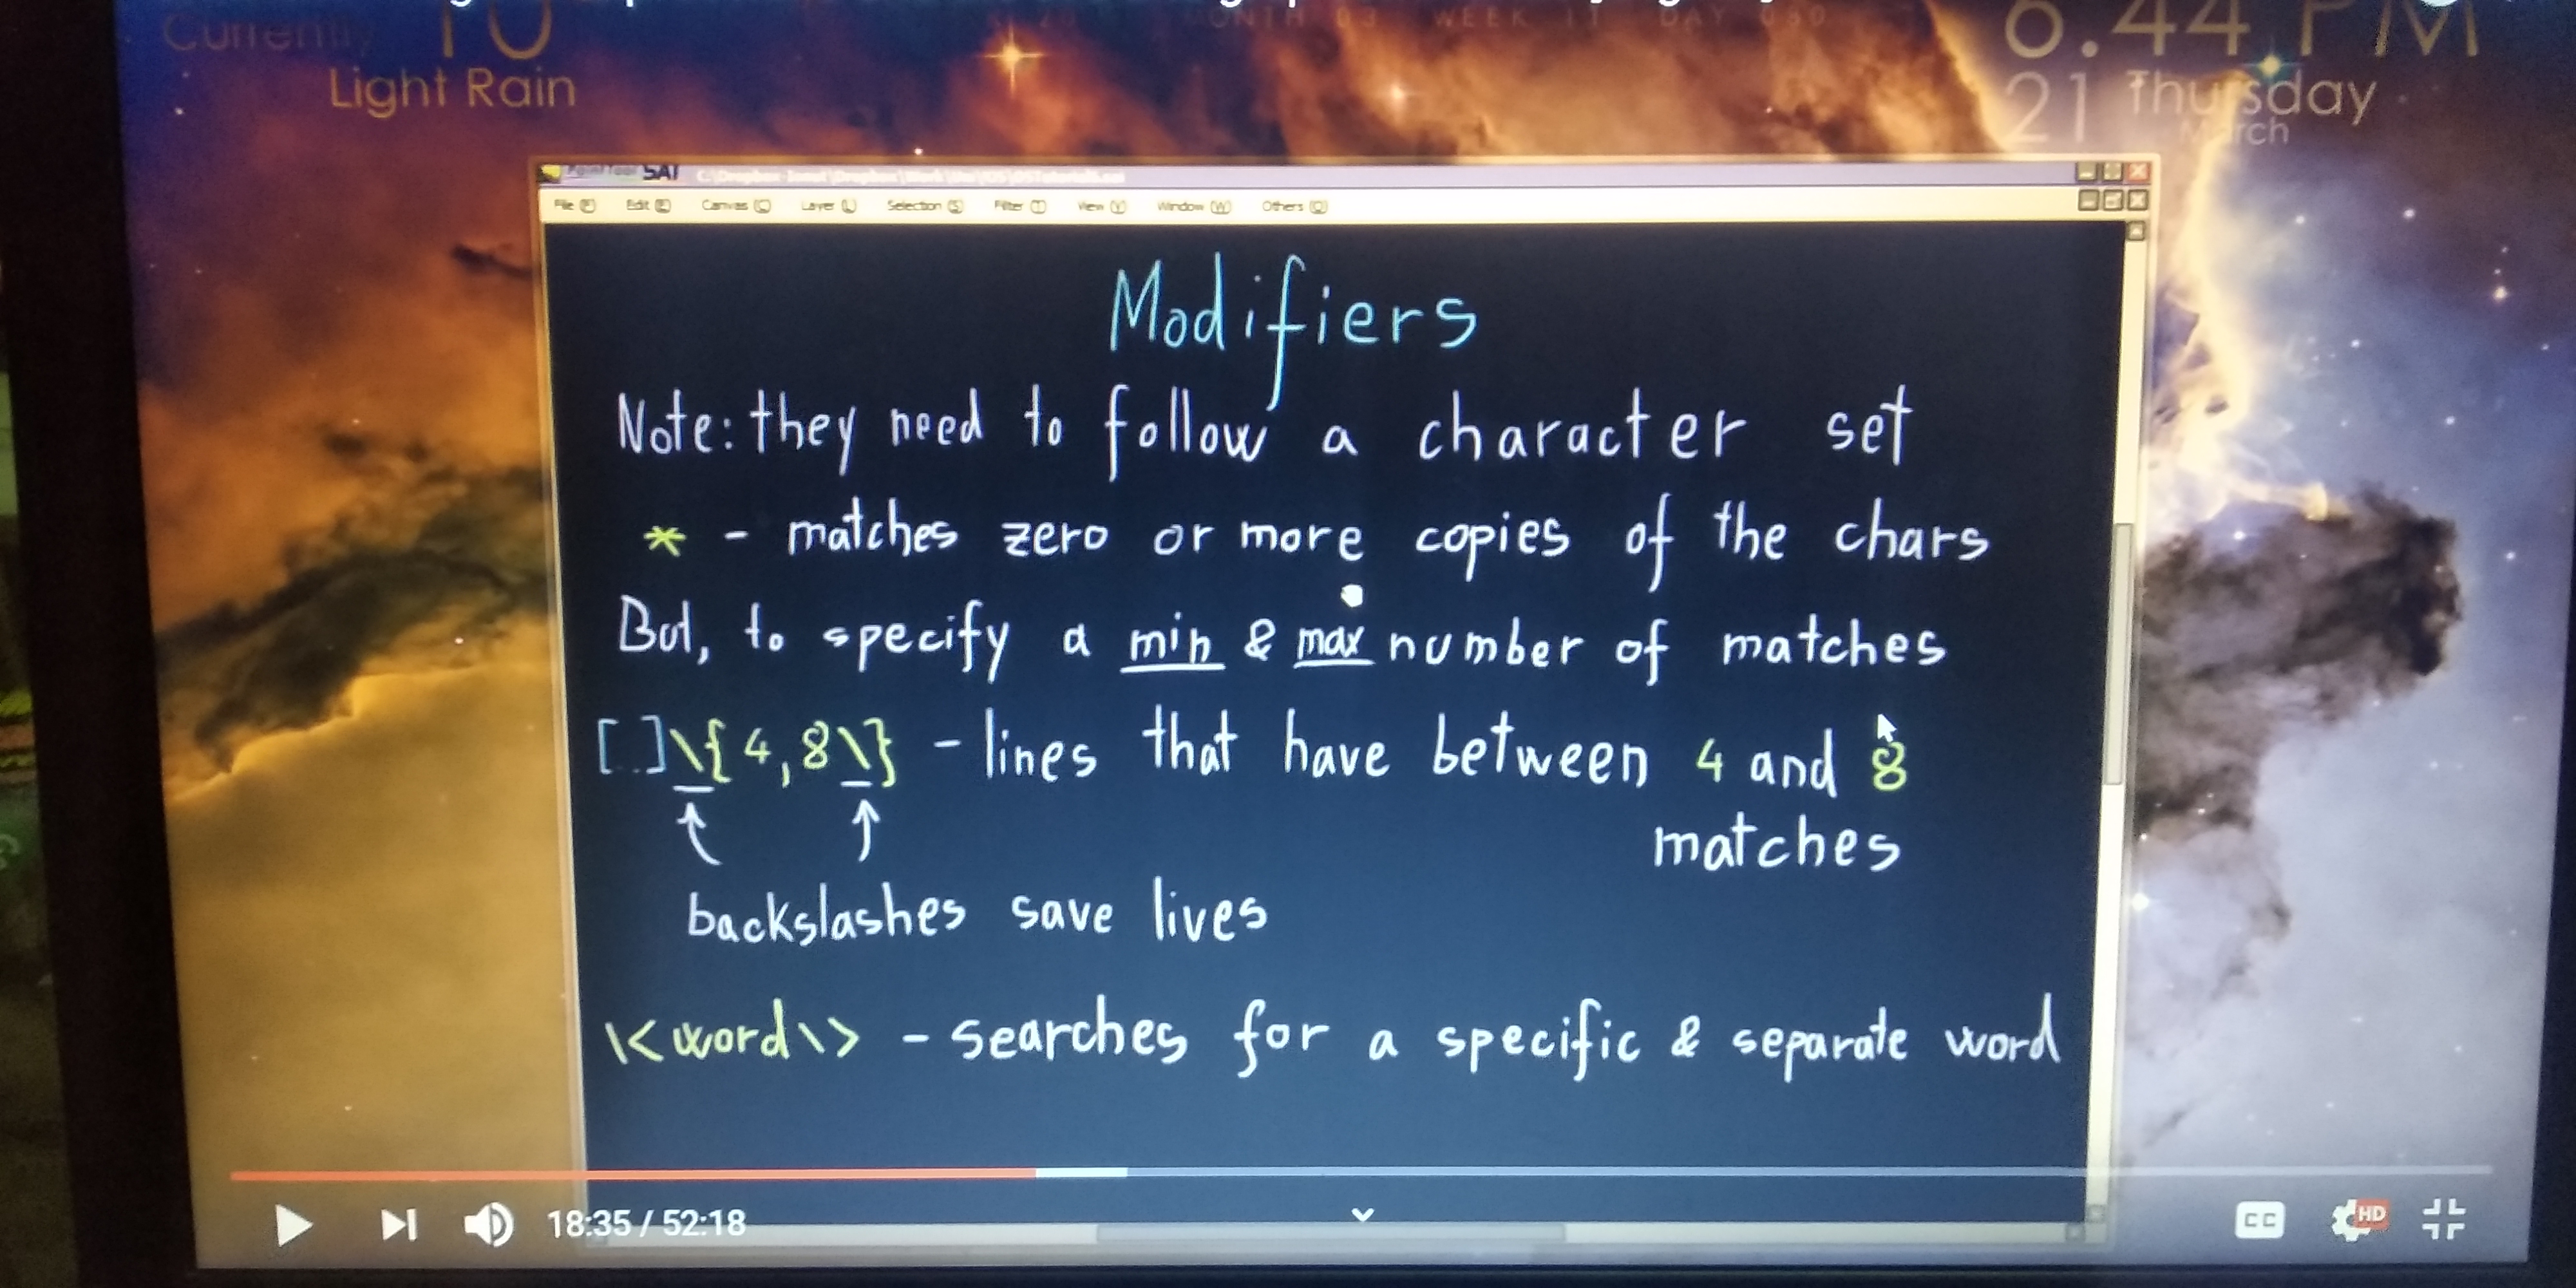 Currently 10
Light Rain
MONTH 03 WEEK 11 DAY 080
6.44 PM
21 Thursday
March
PaintTool SAI
File (F) Edit (E) Canvas (C) Layer (L) Selection (S) Filter (T) View (V) Window (W) Others (O)
Modifiers
Note: they need to follow a character set
* - matches zero or more copies of the chars
But, to specify a min & max number of matches
[..]\{4,8\} - lines that have between 4 and 8
matches
backslashes save lives
\<word\> - searches for a specific & separate word
18:35 / 52:18
CC
HD